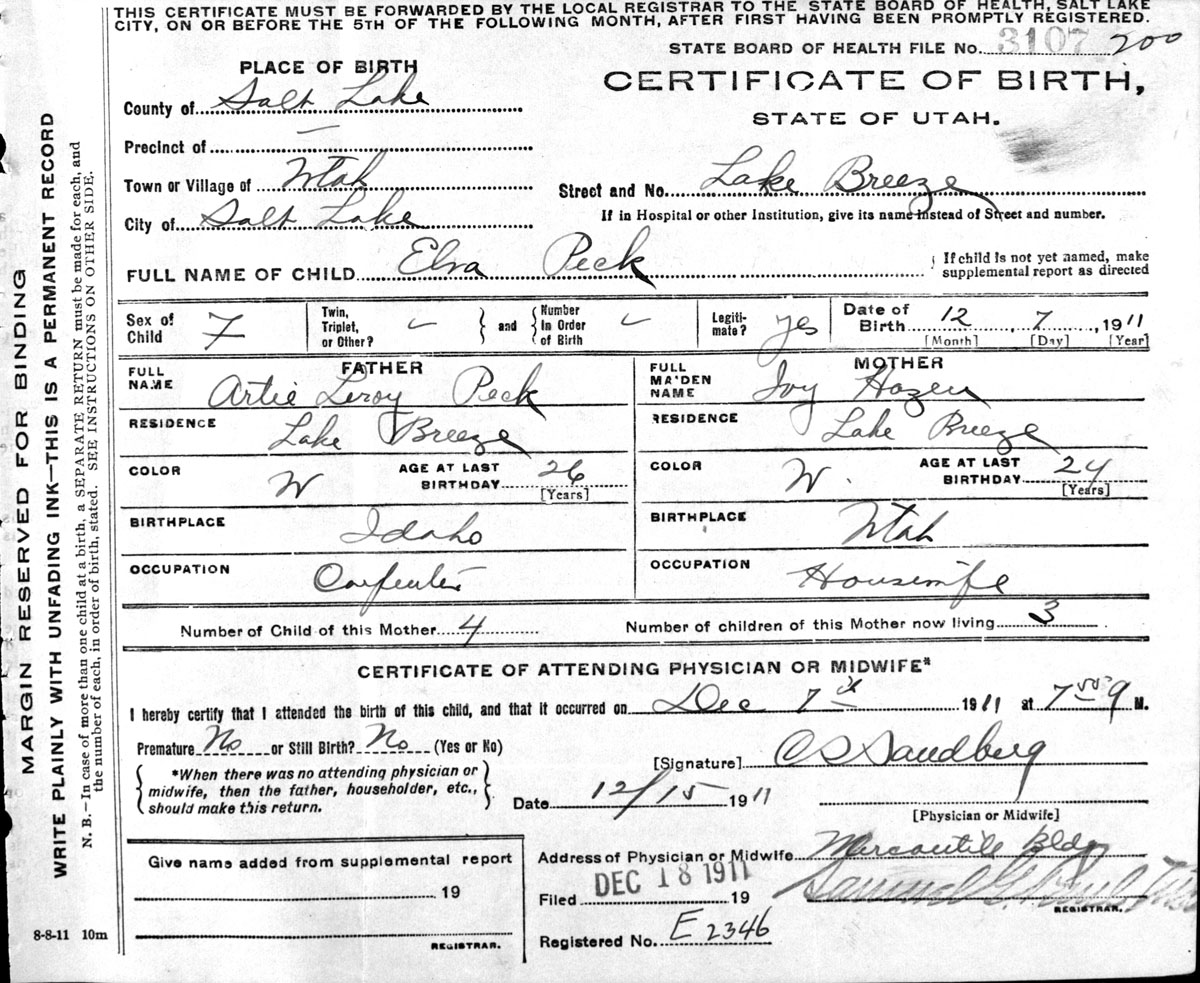 THIS CERTIFICATE MUST BE FORWARDED BY THE LOCAL REGISTRAR TO THE STATE BOARD OF HEALTH, SALT LAKE
CITY, ON OR BEFORE THE 5TH OF THE FOLLOWING MONTH, AFTER FIRST HAVING BEEN PROMPTLY REGISTERED.
STATE BOARD OF HEALTH FILE No. 3107 200
PLACE OF BIRTH
CERTIFICATE OF BIRTH,
STATE OF UTAH.
County of Salt Lake
Precinct of —
Town or Village of Utah
Street and No. Lake Breeze
City of Salt Lake
If in Hospital or other Institution, give its name instead of Street and number.
FULL NAME OF CHILD Elva Peck
If child is not yet named, make
supplemental report as directed
Sex of Child F
Twin, Triplet, or Other?
and
Number In Order of Birth
Legiti-mate? yes
Date of Birth 12, 7, 1911
[Month] [Day] [Year]
FATHER
FULL NAME Artie Leroy Peck
RESIDENCE Lake Breeze
COLOR W
AGE AT LAST BIRTHDAY 26
[Years]
BIRTHPLACE Idaho
OCCUPATION Carpenter
MOTHER
FULL MAIDEN NAME Ivy Hazen
RESIDENCE Lake Breeze
COLOR W.
AGE AT LAST BIRTHDAY 24
[Years]
BIRTHPLACE Utah
OCCUPATION Housewife
Number of Child of this Mother 4
Number of children of this Mother now living 3
CERTIFICATE OF ATTENDING PHYSICIAN OR MIDWIFE*
I hereby certify that I attended the birth of this child, and that it occurred on Dec 7 1911 at 7 M.
Premature No or Still Birth? No (Yes or No)
*When there was no attending physician or
midwife, then the father, householder, etc.,
should make this return.
[Signature] C S Sandberg
Date 12/15 1911
[Physician or Midwife]
Give name added from supplemental report
19
REGISTRAR.
Address of Physician or Midwife Mercantile Bldg
Filed DEC 18 1911 19
Samuel G. Paul
REGISTRAR.
Registered No. E 2346
8-8-11 10m
MARGIN RESERVED FOR BINDING
WRITE PLAINLY WITH UNFADING INK—THIS IS A PERMANENT RECORD
N. B.—In case of more than one child at a birth, a SEPARATE RETURN must be made for each, and
the number of each, in order of birth, stated. SEE INSTRUCTIONS ON OTHER SIDE.